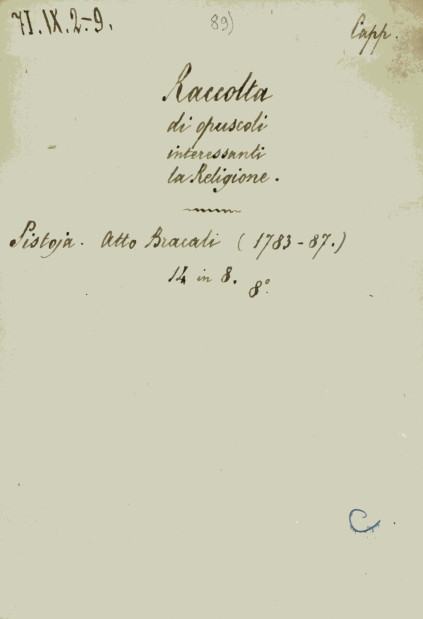 71.IX.2-9.
89)
Capp.
Raccolta
di opuscoli
interessanti
la Religione.
Pistoja. Atto Bracali (1783-87.)
14 in 8. 8°.
C